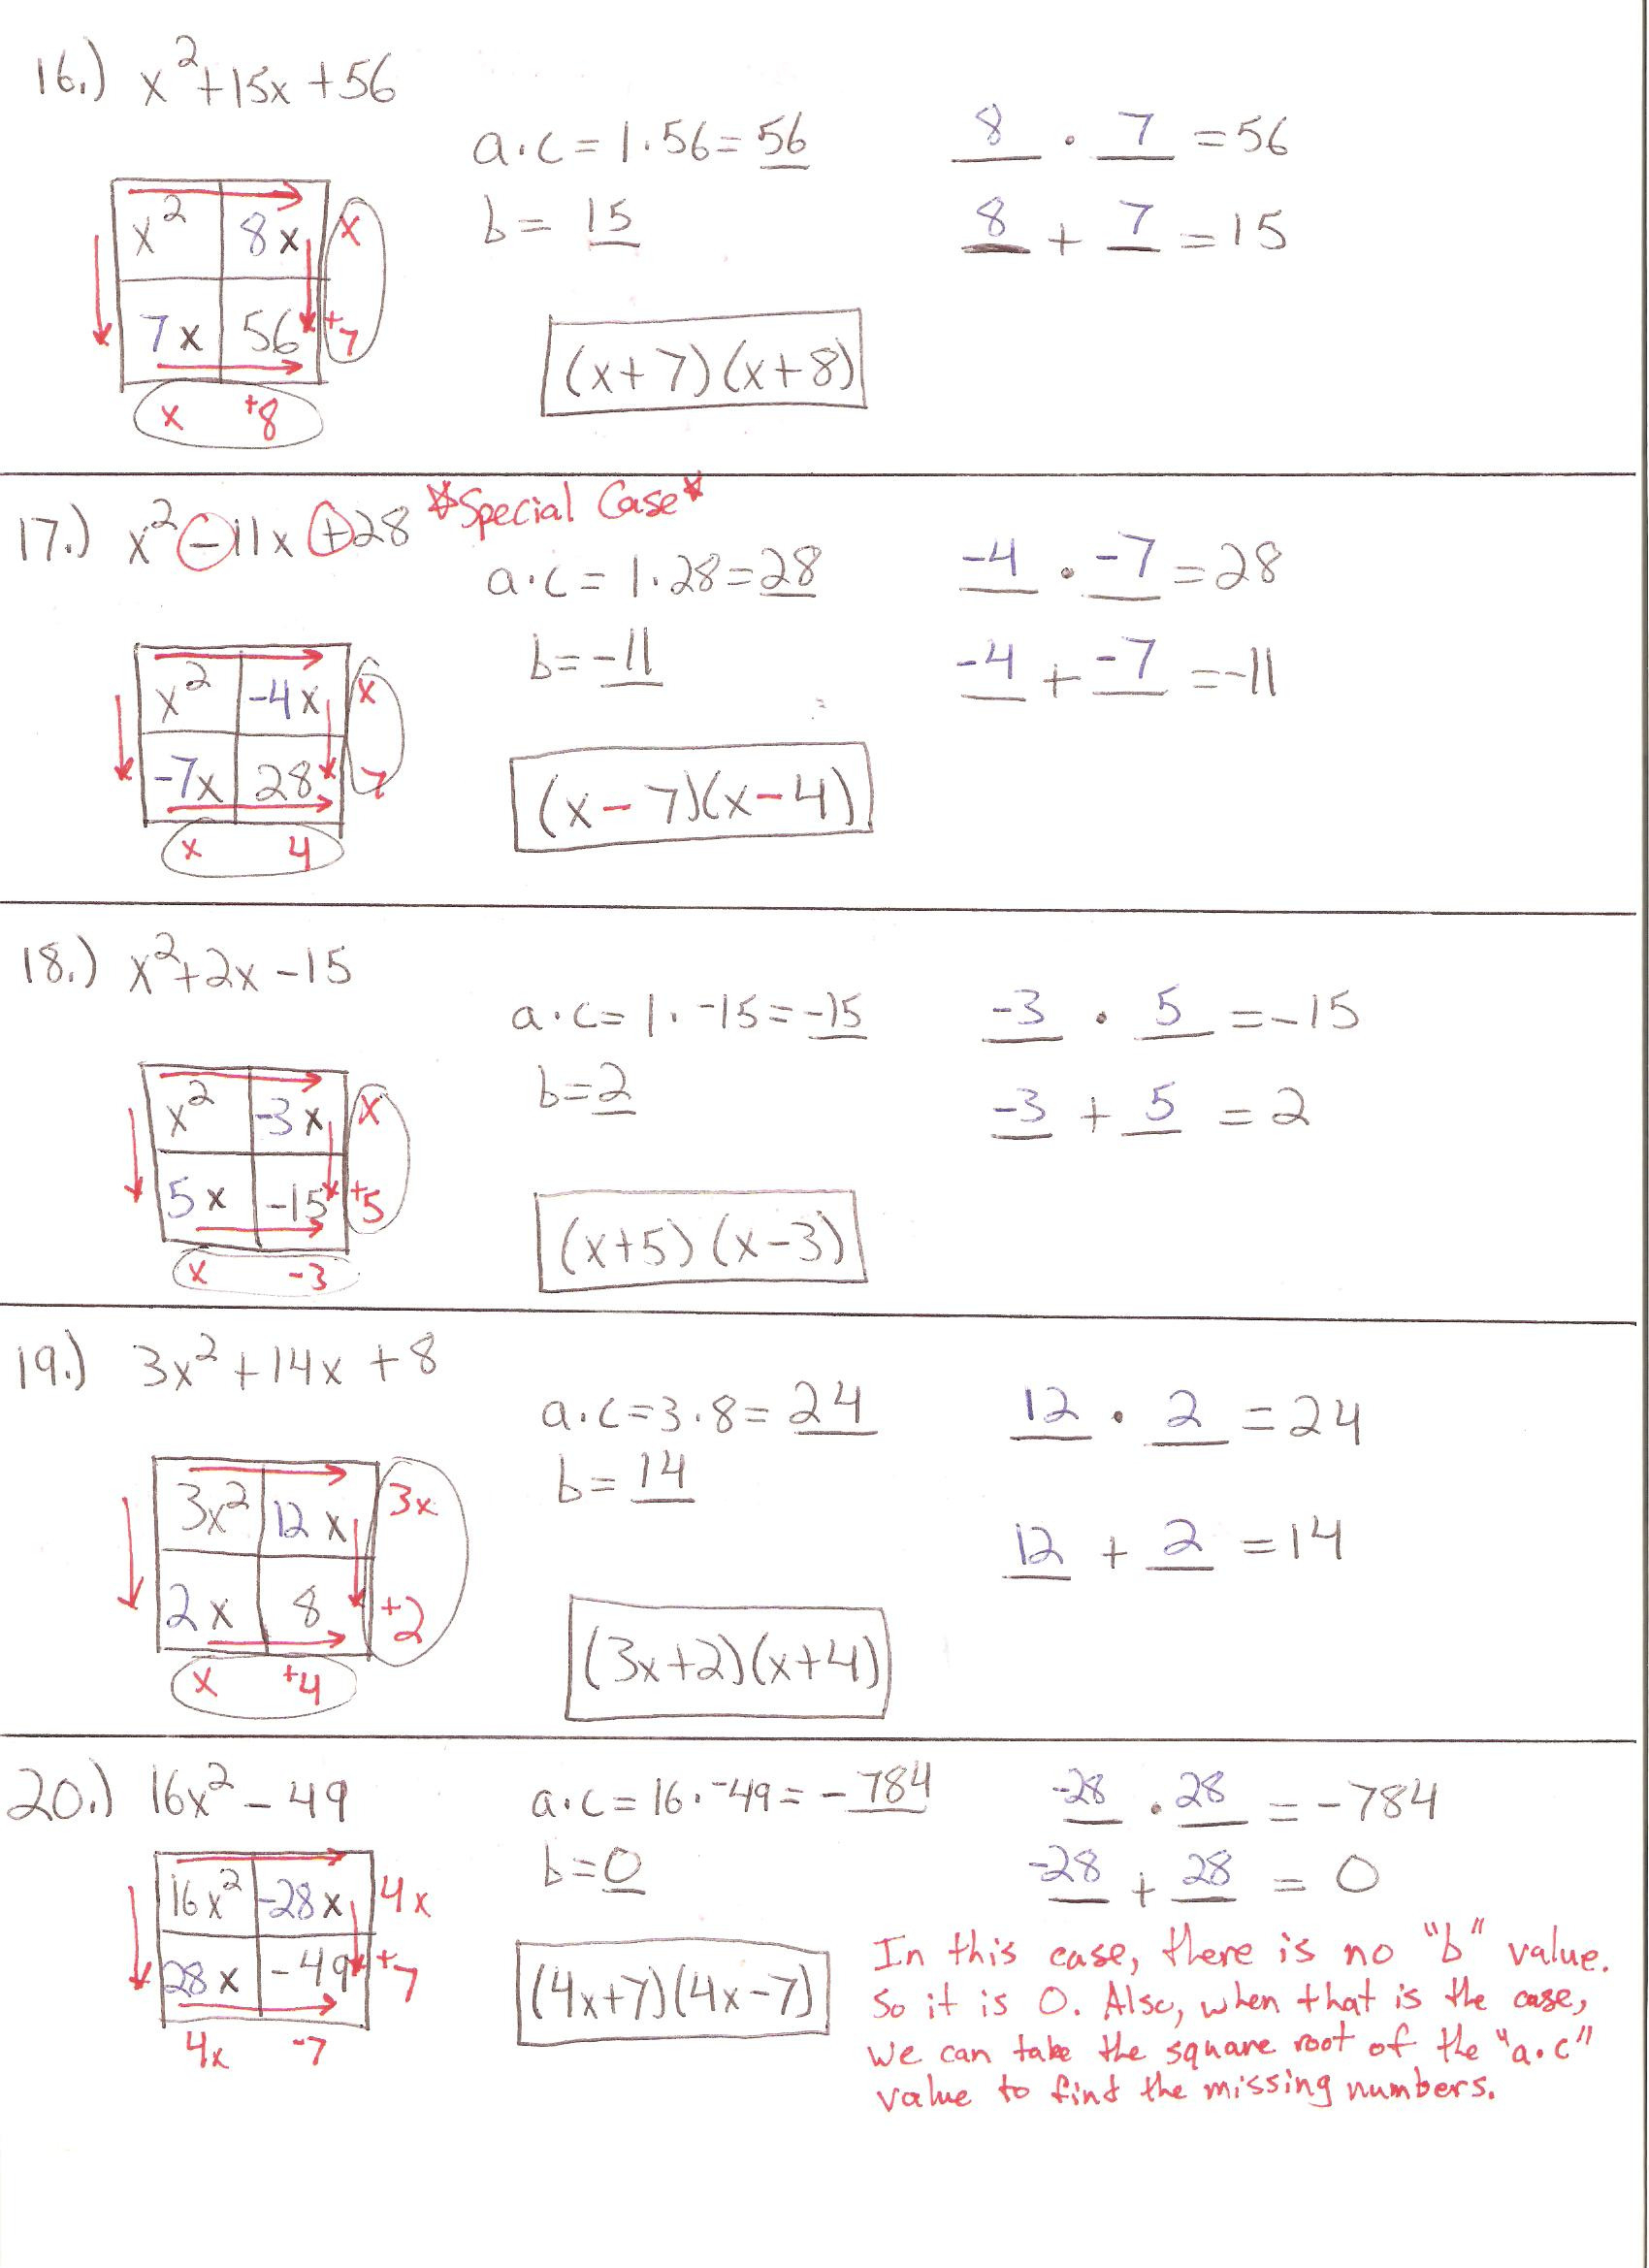 16.) x²+15x+56
a·c = 1·56 = 56
8 · 7 = 56
b = 15
8 + 7 = 15
x² 8x x
7x 56 +7
x +8
(x+7)(x+8)
17.) x²-11x+28 *Special Case*
a·c = 1·28 = 28
-4 · -7 = 28
b = -11
-4 + -7 = -11
x² -4x x
-7x 28 7
x 4
(x-7)(x-4)
18.) x²+2x-15
a·c = 1·-15 = -15
-3 · 5 = -15
b = 2
-3 + 5 = 2
x² -3x x
5x -15 +5
x -3
(x+5)(x-3)
19.) 3x²+14x+8
a·c = 3·8 = 24
12 · 2 = 24
b = 14
12 + 2 = 14
3x² 12x 3x
2x 8 +2
x +4
(3x+2)(x+4)
20.) 16x²-49
a·c = 16·-49 = -784
-28 · 28 = -784
b = 0
-28 + 28 = 0
16x² -28x 4x
28x -49 +7
4x -7
(4x+7)(4x-7)
In this case, there is no "b" value.
So it is 0. Also, when that is the case,
we can take the square root of the "a·c"
value to find the missing numbers.